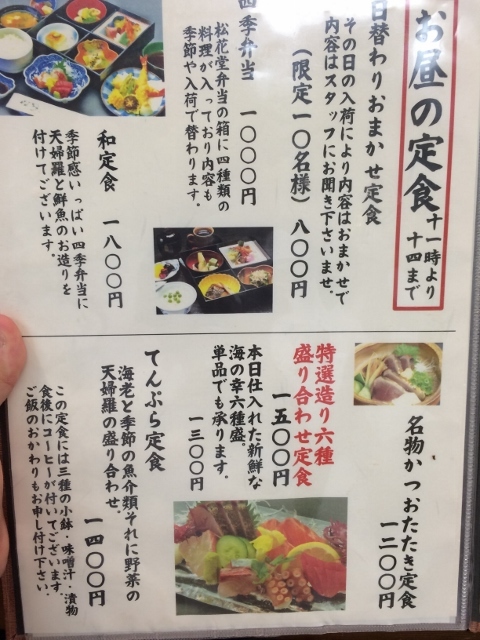 お昼の定食
十一時より
十四まで
日替わりおまかせ定食
その日の入荷により内容はおまかせで
内容はスタッフにお聞き下さいませ。
(限定一〇名様) 八〇〇円
四季弁当 一〇〇〇円
松花堂弁当の箱に四種類の
料理が入っており内容も
季節や入荷で替わります。
和定食 一八〇〇円
季節感いっぱい四季弁当に
天婦羅と鮮魚のお造りを
付けてございます。
名物かつおたたき定食
一二〇〇円
特選造り六種
盛り合わせ定食
一五〇〇円
本日仕入れた新鮮な
海の幸六種盛。
単品でも承ります。
一三〇〇円
てんぷら定食
海老と季節の魚介類それに野菜の
天婦羅の盛り合わせ。
一四〇〇円
この定食には三種の小鉢・味噌汁・漬物
食後にコーヒーが付いてございます。
ご飯のおかわりもお申し付け下さい。